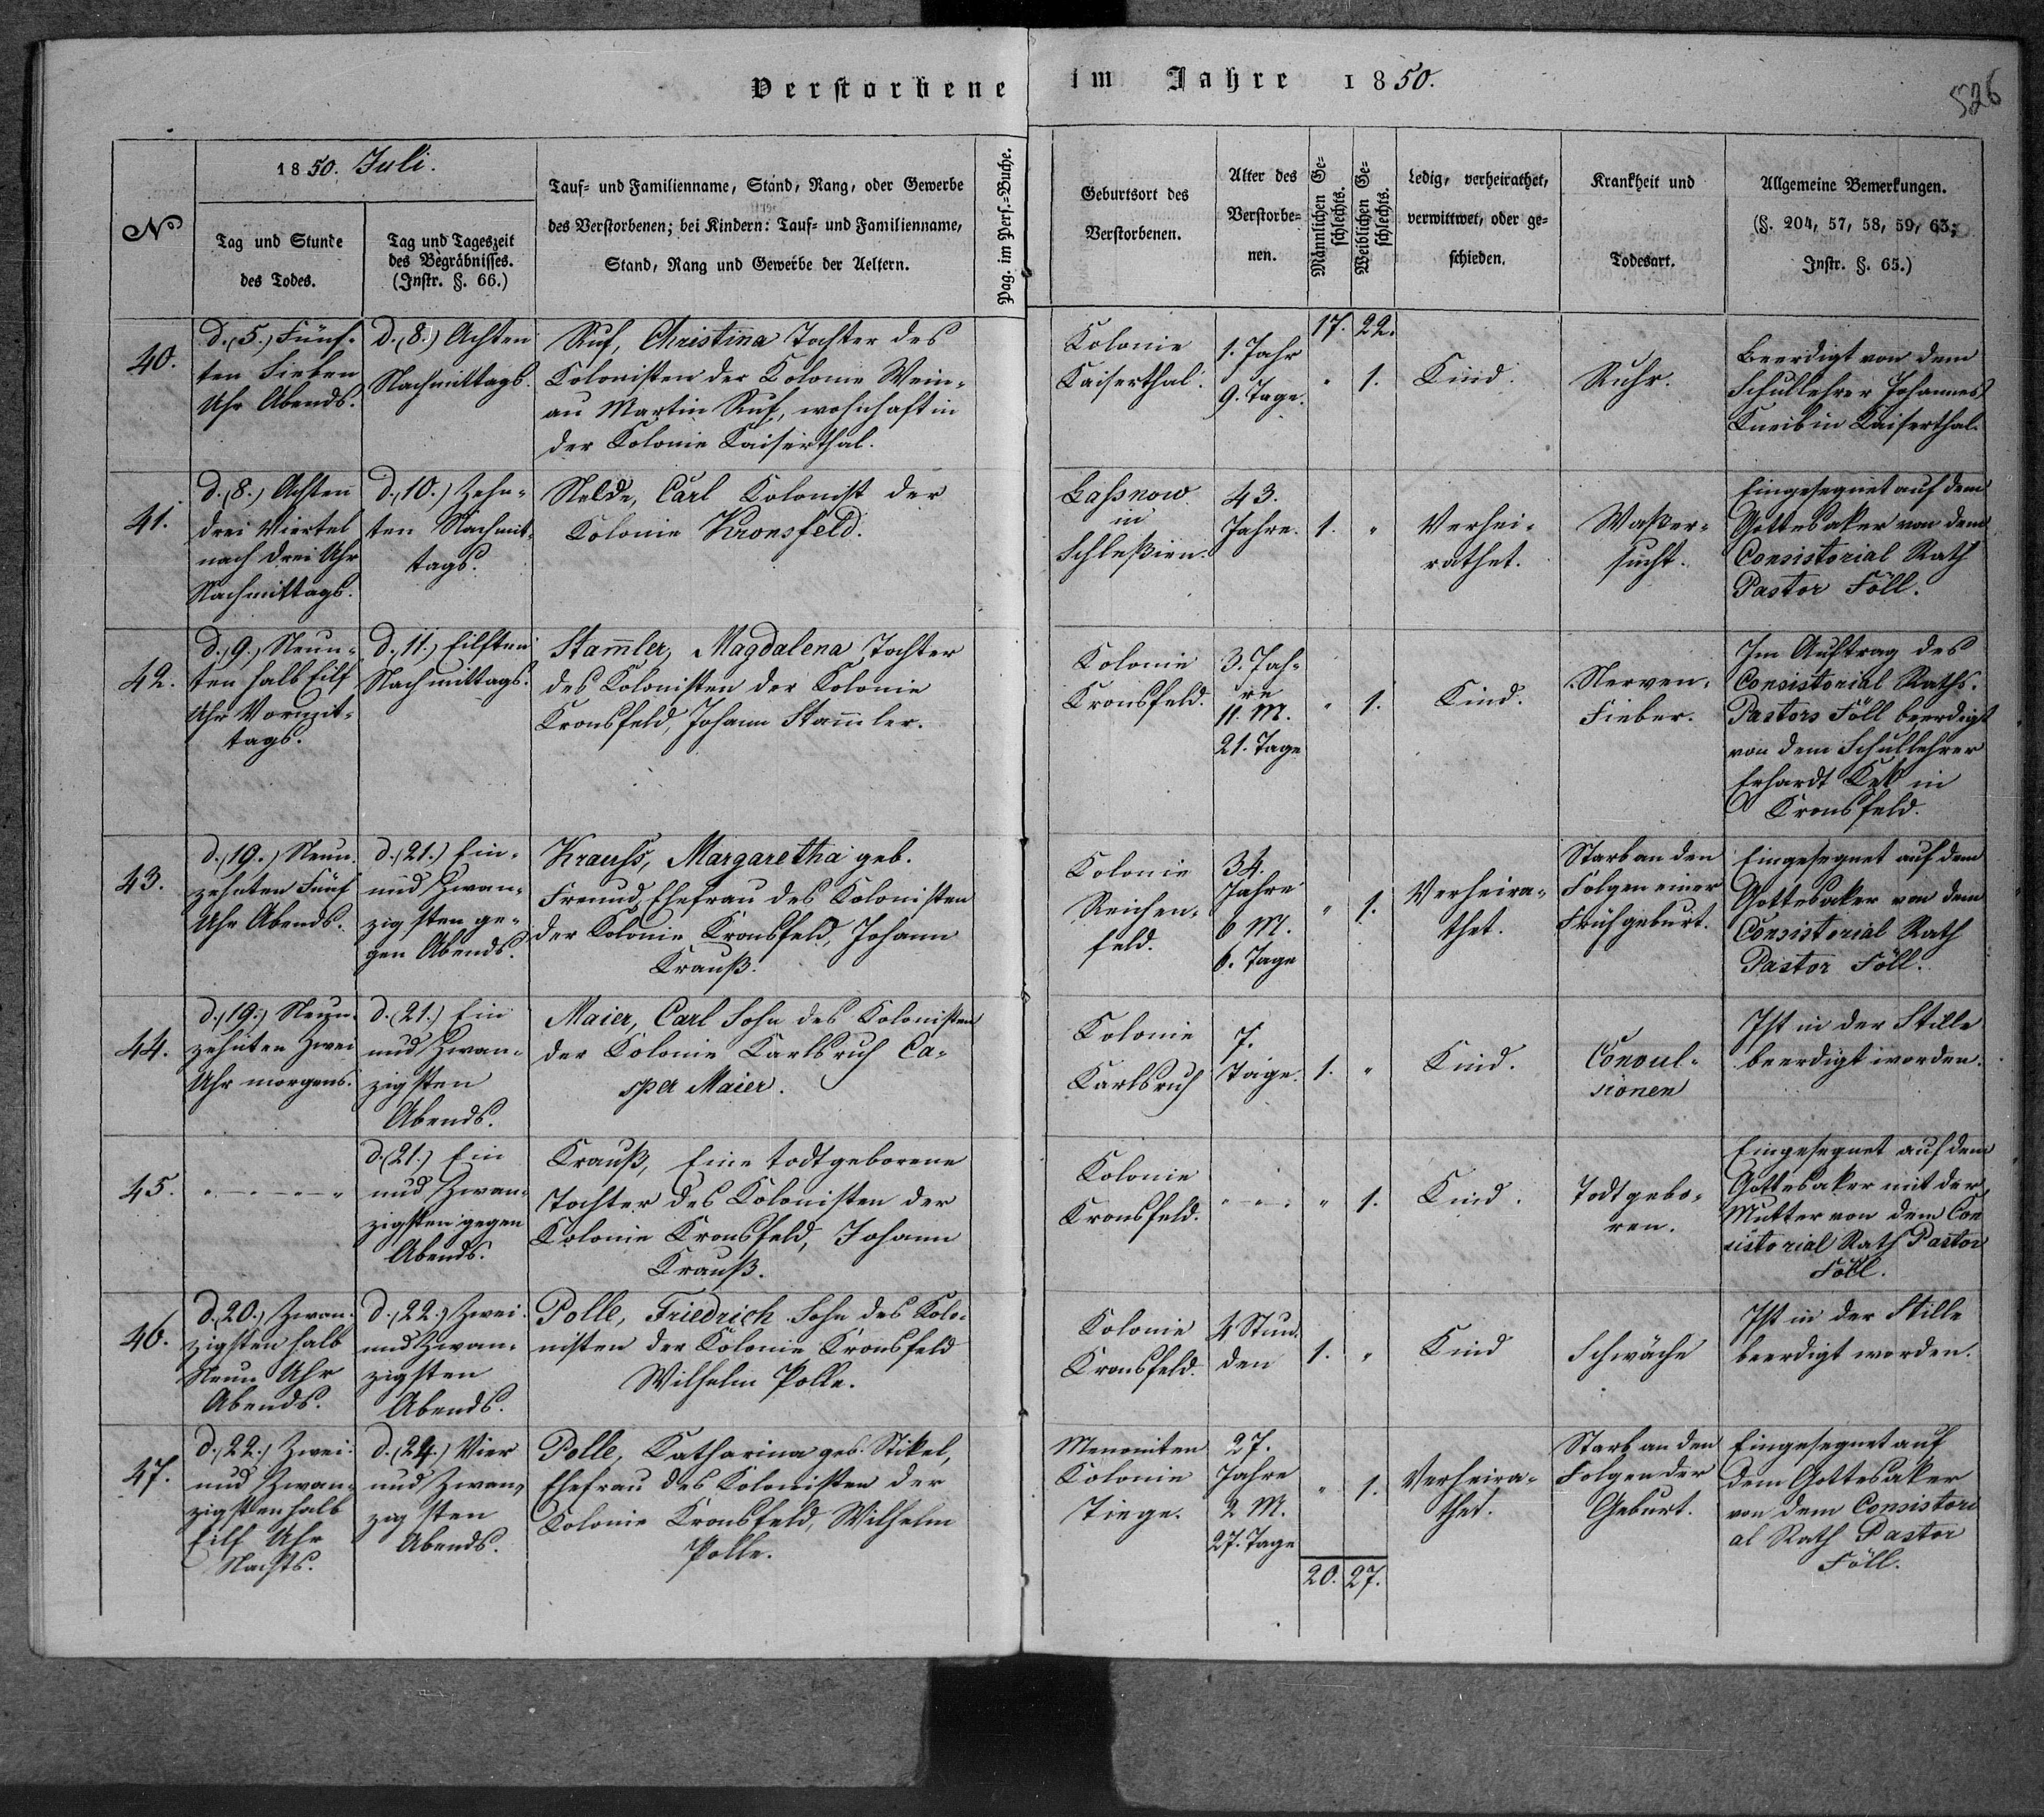 Verstorbene im Jahre 1850.
526
No
1850. Juli.
Tag und Stunde
des Todes.
Tag und Tageszeit
des Begräbnisses.
(Instr. §. 66.)
Tauf- und Familienname, Stand, Rang, oder Gewerbe
des Verstorbenen; bei Kindern: Tauf- und Familienname,
Stand, Rang und Gewerbe der Aeltern.
Pag. im Pers.-Buche.
Geburtsort des
Verstorbenen.
Alter des
Verstorbe-
nen.
Männlichen Ge-
schlechts.
Weiblichen Ge-
schlechts.
Ledig, verheirathet,
verwittwet, oder ge-
schieden.
Krankheit und
Todesart.
Allgemeine Bemerkungen.
(§. 204, 57, 58, 59, 63,
Instr. §. 65.)
17. 22.
40.
d. (5.) Fünf-
ten Sieben
Uhr Abends.
d. (8.) Achten
Nachmittags.
Ruf, Christina Tochter des
Kolonisten der Kolonie Wein-
au Martin Ruf, wohnhaft in
der Kolonie Kaiserthal.
Kolonie
Kaiserthal.
1. Jahr
9. Tage.
" 1.
Kind.
Ruhr.
Beerdigt von dem
Schullehrer Johannes
Kneib in Kaiserthal.
41.
d. (8.) Achten
drei Viertel
nach drei Uhr
Nachmittags.
d. (10.) Zehn-
ten Nachmit-
tags.
Nelde, Carl Kolonist der
Kolonie Kronsfeld.
Lassnow
in
Schleßien.
43.
Jahre.
1. "
Verhei-
rathet.
Waßer-
sucht.
Eingesegnet auf dem
Gottesaker von dem
Consistorial Rath
Pastor Föll.
42.
d. (9.) Neun-
ten halb Eilf
Uhr Vormit-
tags.
d. (11.) Eilften
Nachmittags.
Stam̄ler, Magdalena Tochter
des Kolonisten der Kolonie
Kronsfeld, Johann Stam̄ler.
Kolonie
Kronsfeld.
3. Jah-
re
11. M.
21. Tage
" 1.
Kind.
Nerven-
Fieber.
Im Auftrag des
Consistorial Raths.
Pastors Föll beerdigt
von dem Schullehrer
Erhardt in
Kronsfeld.
43.
d. (19.) Neun-
zehnten Fünf
Uhr Abends.
d. (21.) Ein-
und Zwan-
zigsten ge-
gen Abends.
Krauss, Margaretha geb.
Freund, Ehefrau des Kolonisten
der Kolonie Kronsfeld, Johann
Krauß.
Kolonie
Reichen-
feld.
34.
Jahre
6 M.
6. Tage
" 1.
Verheira-
thet.
Starb an den
Folgen einer
Frühgeburt.
Eingesegnet auf dem
Gottesaker von dem
Consistorial Rath
Pastor Föll.
44.
d. (19.) Neun-
zehnten Zwei
Uhr morgens.
d. (21.) Ein
und Zwan-
zigsten
Abends.
Maier, Carl Sohn des Kolonisten
der Kolonie Karlsruh Ca-
sper Maier.
Kolonie
Karlsruh
7.
Tage.
1. "
Kind.
Convul-
sionen
Ist in der Stille
beerdigt worden.
45.
" — " — " — "
d. (21.) Ein
und Zwan-
zigsten gegen
Abends.
Krauß, Eine todtgeborene
Tochter des Kolonisten der
Kolonie Kronsfeld, Johann
Krauß.
Kolonie
Kronsfeld.
" — " —
" 1.
Kind.
Todtgebo-
ren.
Eingesegnet auf dem
Gottesaker mit der
Mutter von dem Con
sistorial Rath Pastor
Föll.
46.
d. (20.) Zwan-
zigsten halb
Neun Uhr
Abends.
d. (22.) Zwei-
und Zwan-
zigsten
Abends.
Polle, Friedrich Sohn des Kolo-
nisten der Kolonie Kronsfeld
Wilhelm Polle.
Kolonie
Kronsfeld.
4 Stun-
den
1. "
Kind
Schwäche
Ist in der Stille
beerdigt worden.
47.
d. (22.) Zwei-
und Zwan-
zigsten halb
Eilf Uhr
Nachts.
d. (24.) Vier
und Zwan-
zigsten
Abends.
Polle, Katharina geb. Stikel,
Ehefrau des Kolonisten der
Kolonie Kronsfeld, Wilhelm
Polle.
Menoniten
Kolonie
Tiege.
27.
Jahre
2 M.
27. Tage
" 1.
Verheira-
thet.
Starb an den
Folgen der
Geburt.
Eingesegnet auf
dem Gottesaker
von dem Consistori
al Rath Pastor
Föll.
20. 27.